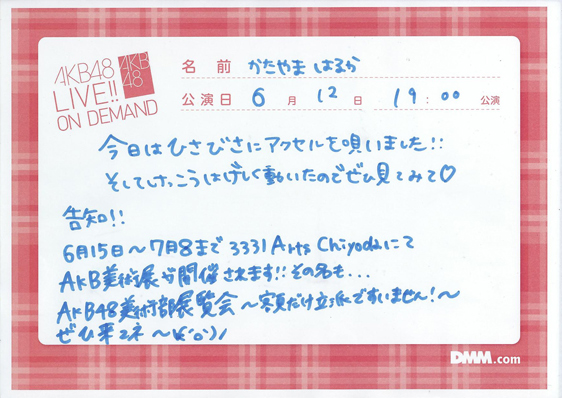 AKB48
LIVE!!
ON DEMAND
AKB
48
名前 かたやま はるか
公演日 6月 12日 19:00 公演
今日はひさびさにアクセルを唄いました!!
そしてけっこうはげしく動いたのでぜひ見てみて♡
告知!!
6月15日〜7月8まで 3331 Arts Chiyodaにて
AKB美術展が開催されます!!その名も...
AKB48美術部展覧会〜写真だけ立派ですいません!〜
ぜひ来てネ〜
DMM.com